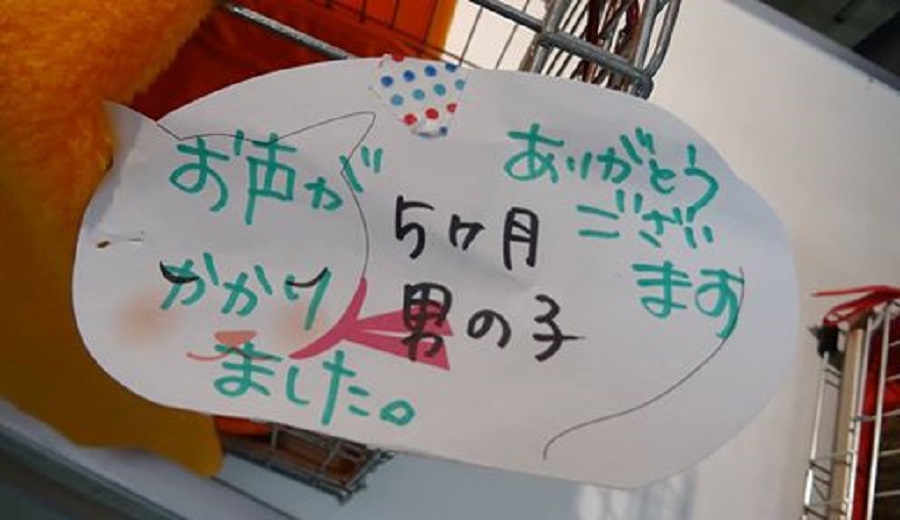 お声が
かかり
ました。
5ヶ月
男の子
ありがとう
ござい
ます